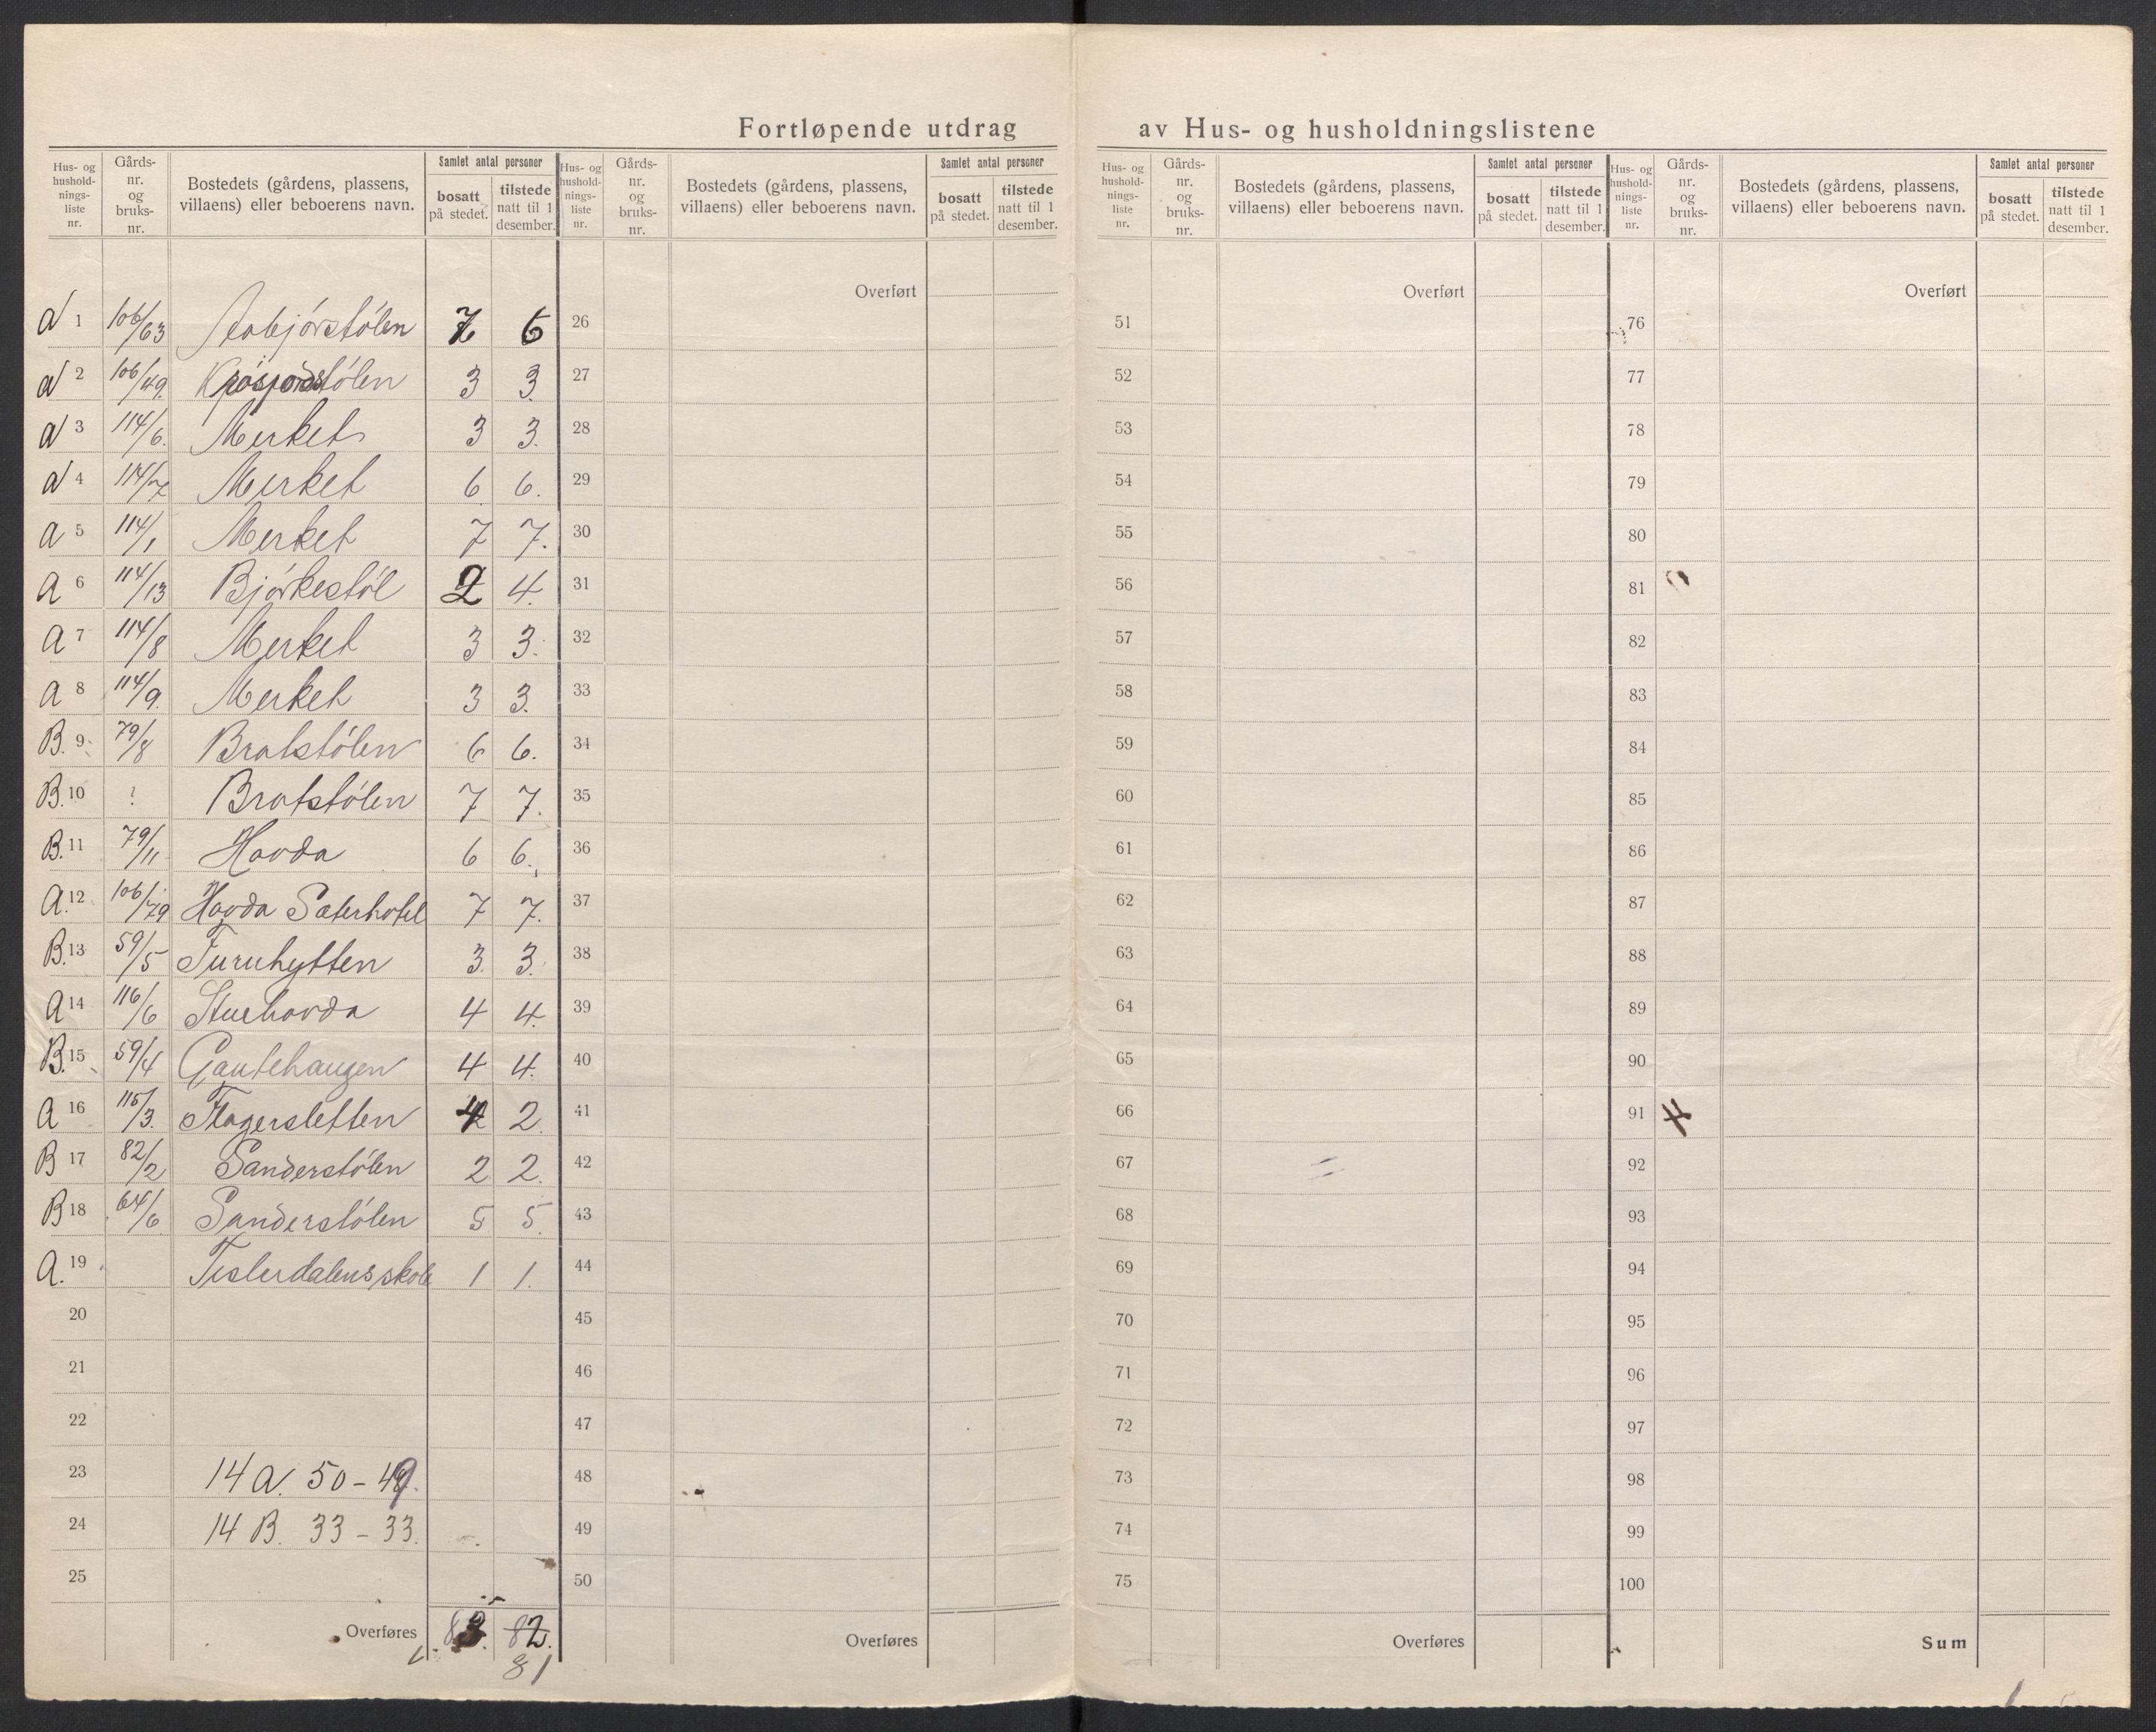 Fortløpende utdrag av Hus- og husholdningslistene
Hus- og husholdnings-liste nr. Gårds-nr. og bruks-nr. Bostedets (gårdens, plassens, villaens) eller beboerens navn. Samlet antal personer bosatt på stedet. tilstede natt til 1 desember.
Hus- og husholdnings-liste nr. Gårds-nr. og bruks-nr. Bostedets (gårdens, plassens, villaens) eller beboerens navn. Samlet antal personer bosatt på stedet. tilstede natt til 1 desember.
Hus- og husholdnings-liste nr. Gårds-nr. og bruks-nr. Bostedets (gårdens, plassens, villaens) eller beboerens navn. Samlet antal personer bosatt på stedet. tilstede natt til 1 desember.
Hus- og husholdnings-liste nr. Gårds-nr. og bruks-nr. Bostedets (gårdens, plassens, villaens) eller beboerens navn. Samlet antal personer bosatt på stedet. tilstede natt til 1 desember.
Overført Overført Overført
a 1 106/63 7 6 26 51 76
a 2 106/49. 3 3. 27 52 77
a 3 114/6. Merket 3 3. 28 53 78
a 4 114/7 Merket 6 6. 29 54 79
a 5 114/1 Merket 7 7. 30 55 80
a 6 114/13 Bjørkestøl 2 4. 31 56 81
a 7 114/8 Merket 3 3. 32 57 82
a 8 114/9. Merket 3 3. 33 58 83
B. 9 79/8 Bratstølen 6 6. 34 59 84
B. 10 Bratstølen 7 7. 35 60 85
B. 11 79/11 Hovda 6 6. 36 61 86
a. 12 106/79 Hovda Sæterhotel 7 7. 37 62 87
B. 13 59/5 Furuhytten 3. 3. 38 63 88
a 14 116/6 Stuehovda 4 4. 39 64 89
B. 15 59/4 Gautehaugen 4 4. 40 65 90
a 16 115/3. Flagersletten 2. 41 66 91
B 17 82/2 Sanderstølen 2 2. 42 67 92
B 18 64/6. Sanderstølen 5 5. 43 68 93
a. 19 Tislerdalens skole 1 1. 44 69 94
20 45 70 95
21 46 71 96
22 47 72 97
23 14 a. 50 - 49. 48 73 98
24 14 B. 33 - 33. 49 74 99
25 50 75 100
Overføres 83. 82. Overføres Overføres Sum
81